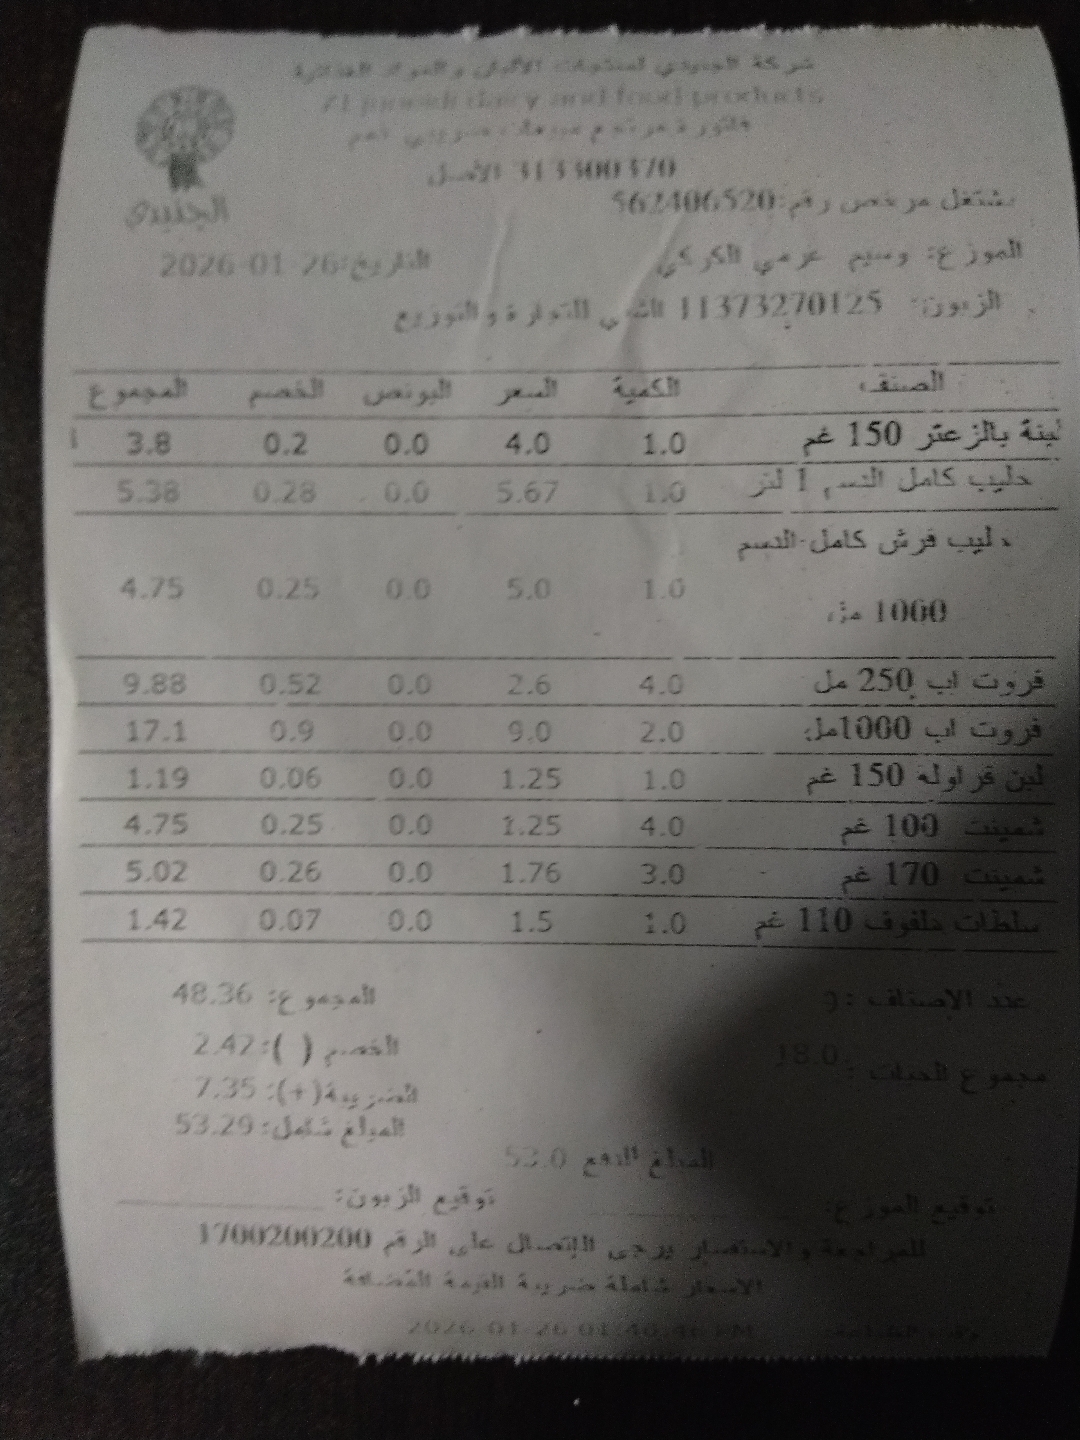 شركة الجنيدي لمنتوجات الألبان والمواد الغذائية
Al juneidi dairy and food products
فاتورة مرتجع مبيعات ضريبي رقم
313300370 الأصل
الجنيدي
مشتغل مرخص رقم:562406520
الموزع: وسيم عزمي الكركي
التاريخ:26-01-2026
الزبون: 11373270125 للتجارة والتوزيع
الصنف الكمية السعر البونص الخصم المجموع
لبنة بالزعتر 150 غم 1.0 4.0 0.0 0.2 3.8
حليب كامل الدسم 1 لتر 1.0 5.67 0.0 0.28 5.38
حليب فرش كامل الدسم
1000 مل 1.0 5.0 0.0 0.25 4.75
فروت اب 250 مل 4.0 2.6 0.0 0.52 9.88
فروت اب 1000مل 2.0 9.0 0.0 0.9 17.1
لبن فراولة 150 غم 1.0 1.25 0.0 0.06 1.19
شمينت 100 غم 4.0 1.25 0.0 0.25 4.75
شمينت 170 غم 3.0 1.76 0.0 0.26 5.02
سلطات ملفوف 110 غم 1.0 1.5 0.0 0.07 1.42
عدد الاصناف :9
المجموع: 48.36
مجموع الحبات : 18.0
الخصم ( ):2.42
الضريبة(+): 7.35
المبلغ شامل:53.29
المبلغ الدفع 53.0
توقيع الموزع:
توقيع الزبون:
للمراجعة والاستفسار يرجى الإتصال على الرقم 1700200200
الاسعار شاملة ضريبة القيمة المضافة
2026-01-26 01:46:46 PM